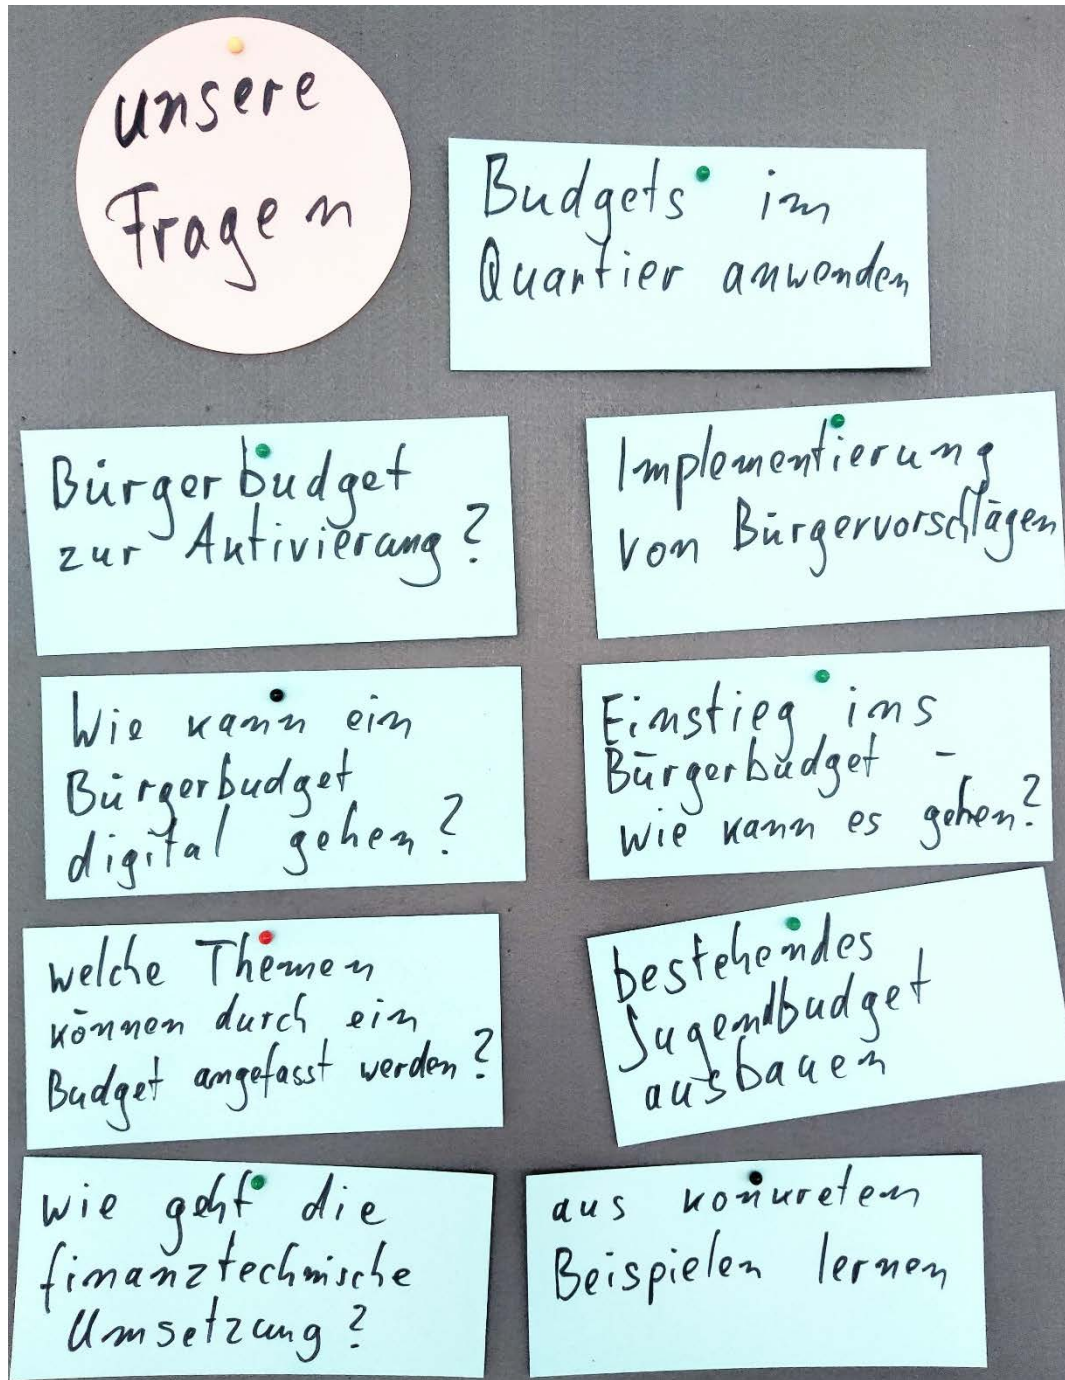 unsere
Fragen
Budgets im
Quartier anwenden
Bürgerbudget
zur Aktivierung?
Implementierung
von Bürgervorschlägen
Wie kann ein
Bürgerbudget
digital gehen?
Einstieg ins
Bürgerbudget -
wie kann es gehen?
welche Themen
können durch ein
Budget angefasst werden?
bestehendes
Jugendbudget
ausbauen
wie geht die
finanztechnische
Umsetzung?
aus konkreten
Beispielen lernen